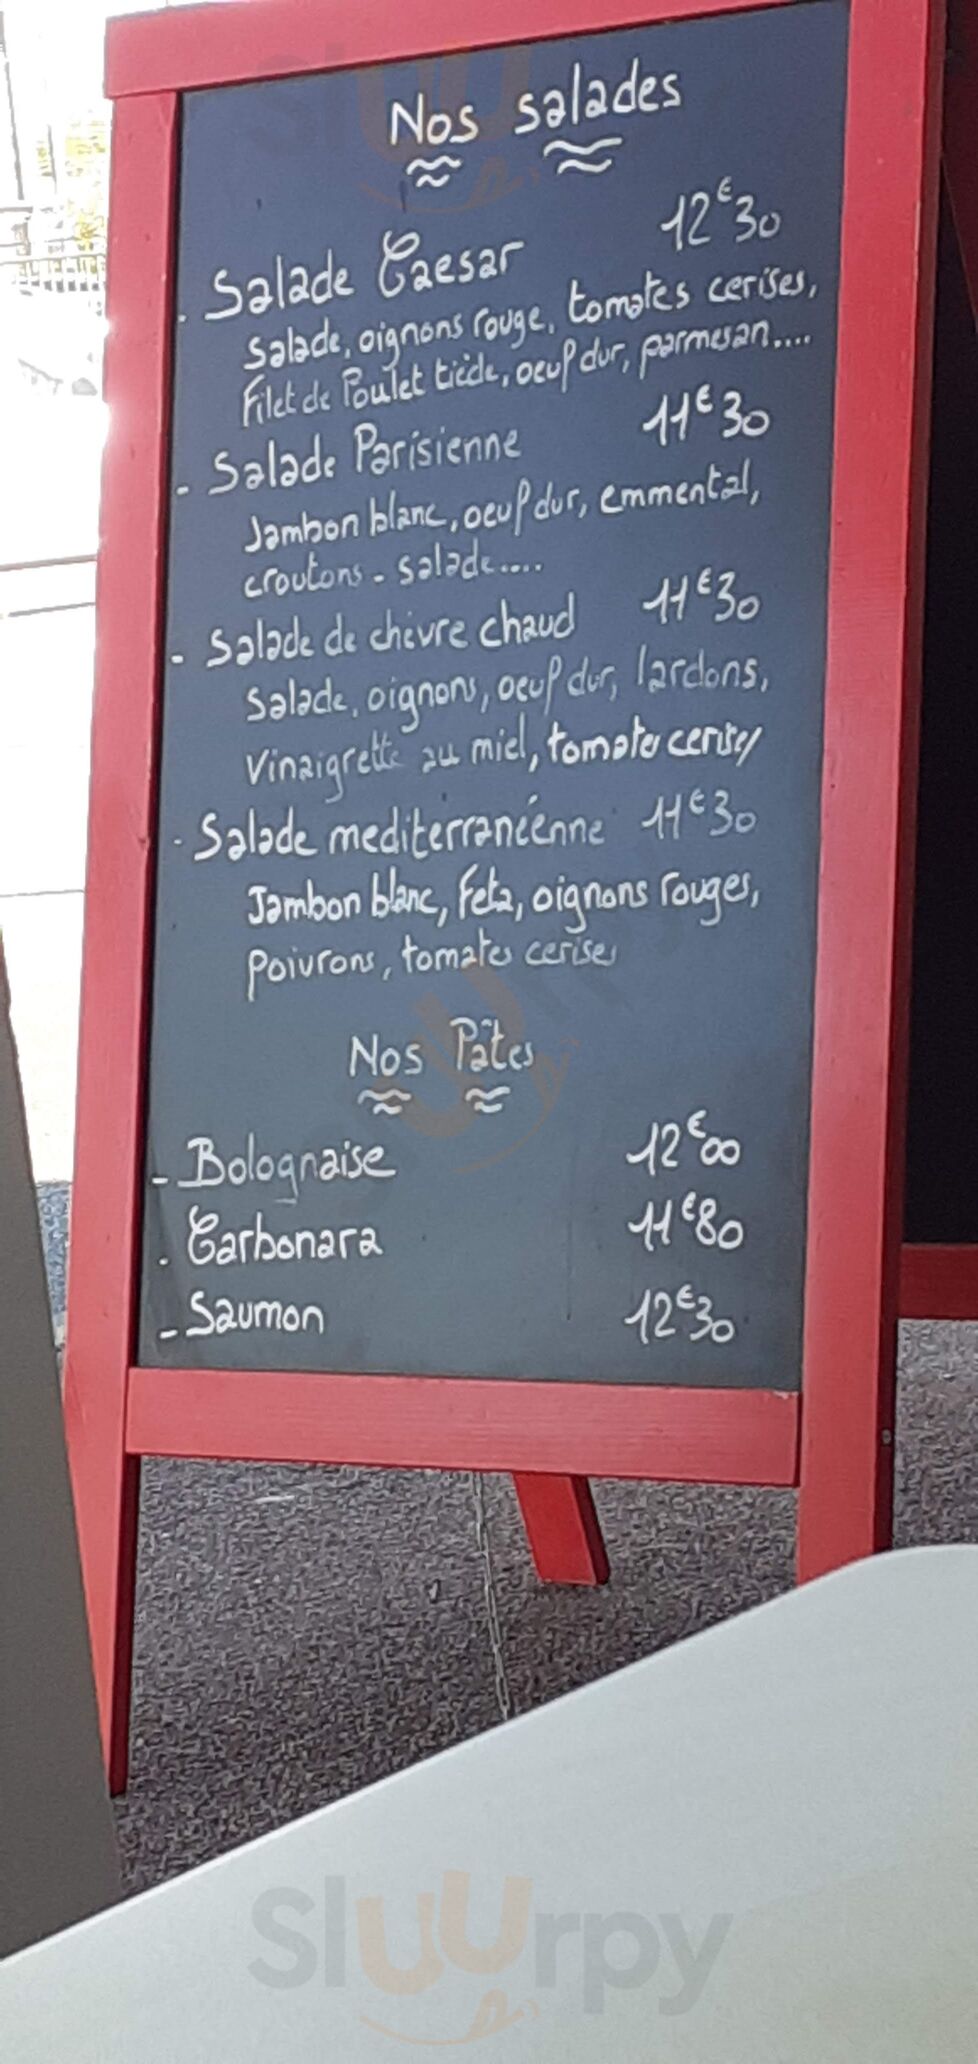 Nos salades
. Salade Caesar 12€30
Salade, oignons rouge, tomates cerises,
Filet de Poulet tiède, oeuf dur, parmesan....
- Salade Parisienne 11€30
Jambon blanc, oeuf dur, emmental,
croutons - salade....
- Salade de chèvre chaud 11€30
Salade, oignons, oeuf dur, lardons,
Vinaigrette au miel, tomates cerises
- Salade mediterranéenne 11€30
Jambon blanc, Feta, oignons rouges,
poivrons, tomates cerises
Nos Pâtes
- Bolognaise 12€00
. Carbonara 11€80
- Saumon 12€30
Sluurpy